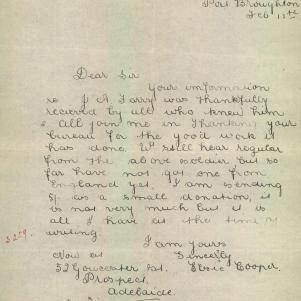 Port Broughton
Feb 11th
Dear Sir
Your imformation
re J A Torry was thankfully
received by all who knew him
& all join me in thanking your
bureau for the good work it
has done. We still hear regular
from the above soldier but so
far have not got one from
England yet. I am sending
5/- as a small donation, it
is not very much but it is
all I have at the time of
writing.
I am yours
Now at Sincerly
52 Gloucester St. Elsie Cooper.
Prospect
Adelaide.